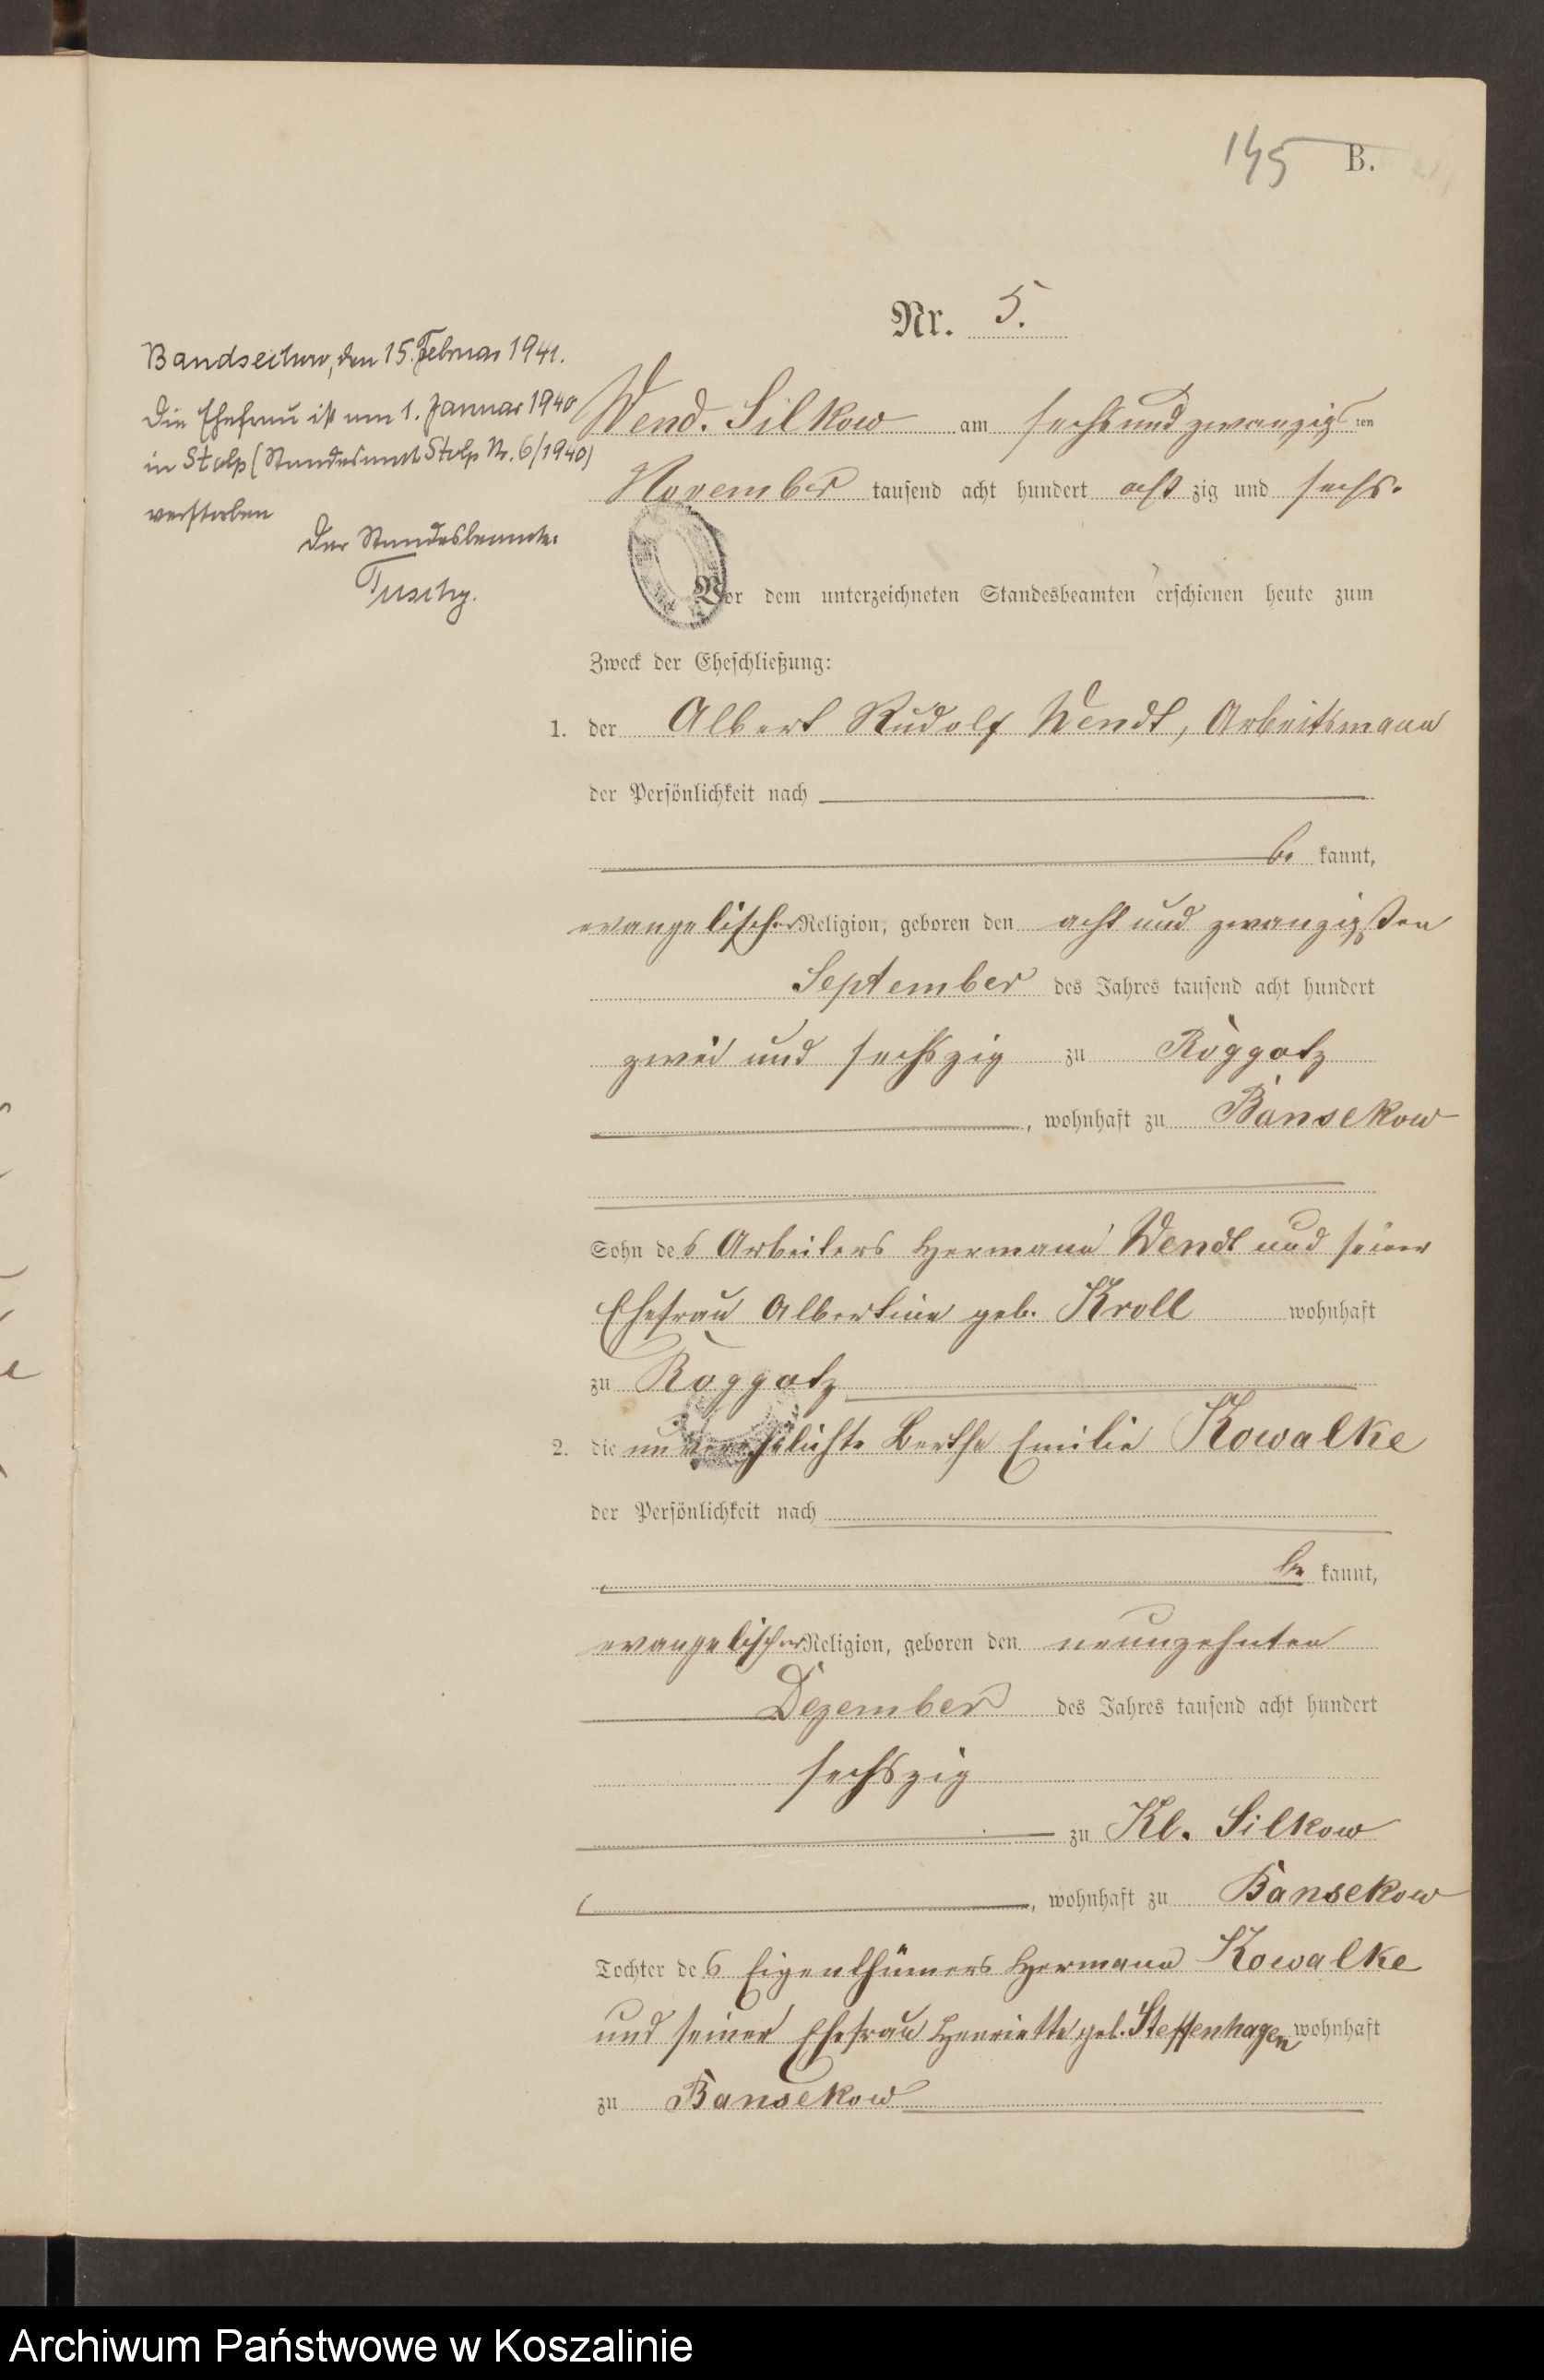 145 B.
Nr. 5.
Bandsechow, den 15. Februar 1941.
Die Ehefrau ist am 1. Januar 1940
in Stolp (Standesamt Stolp Nr. 6/1940)
verstorben
Der Standesbeamte.
Wend. Silkow am sechs und zwanzigsten
November tausend acht hundert achtzig und sechs.
Vor dem unterzeichneten Standesbeamten erschienen heute zum
Zweck der Eheschließung:
1. der Albert Rudolf Wendt, Arbeitsmann
der Persönlichkeit nach
be kannt,
evangelischer Religion, geboren den acht und zwanzigsten
September des Jahres tausend acht hundert
zwei und sechszig zu Roggatz
, wohnhaft zu Bansekow
Sohn des Arbeiters Hermann Wendt und seiner
Ehefrau Albertine geb. Kroll wohnhaft
zu Roggatz
2. die unverehelichte Bertha Emilie Kowalke
der Persönlichkeit nach
be kannt,
evangelischer Religion, geboren den neunzehnten
Dezember des Jahres tausend acht hundert
sechszig
zu Kl. Silkow
, wohnhaft zu Bansekow
Tochter des Eigenthümers Hermann Kowalke
und seiner Ehefrau Henriette geb. Steffenhagen wohnhaft
zu Bansekow
Archiwum Państwowe w Koszalinie